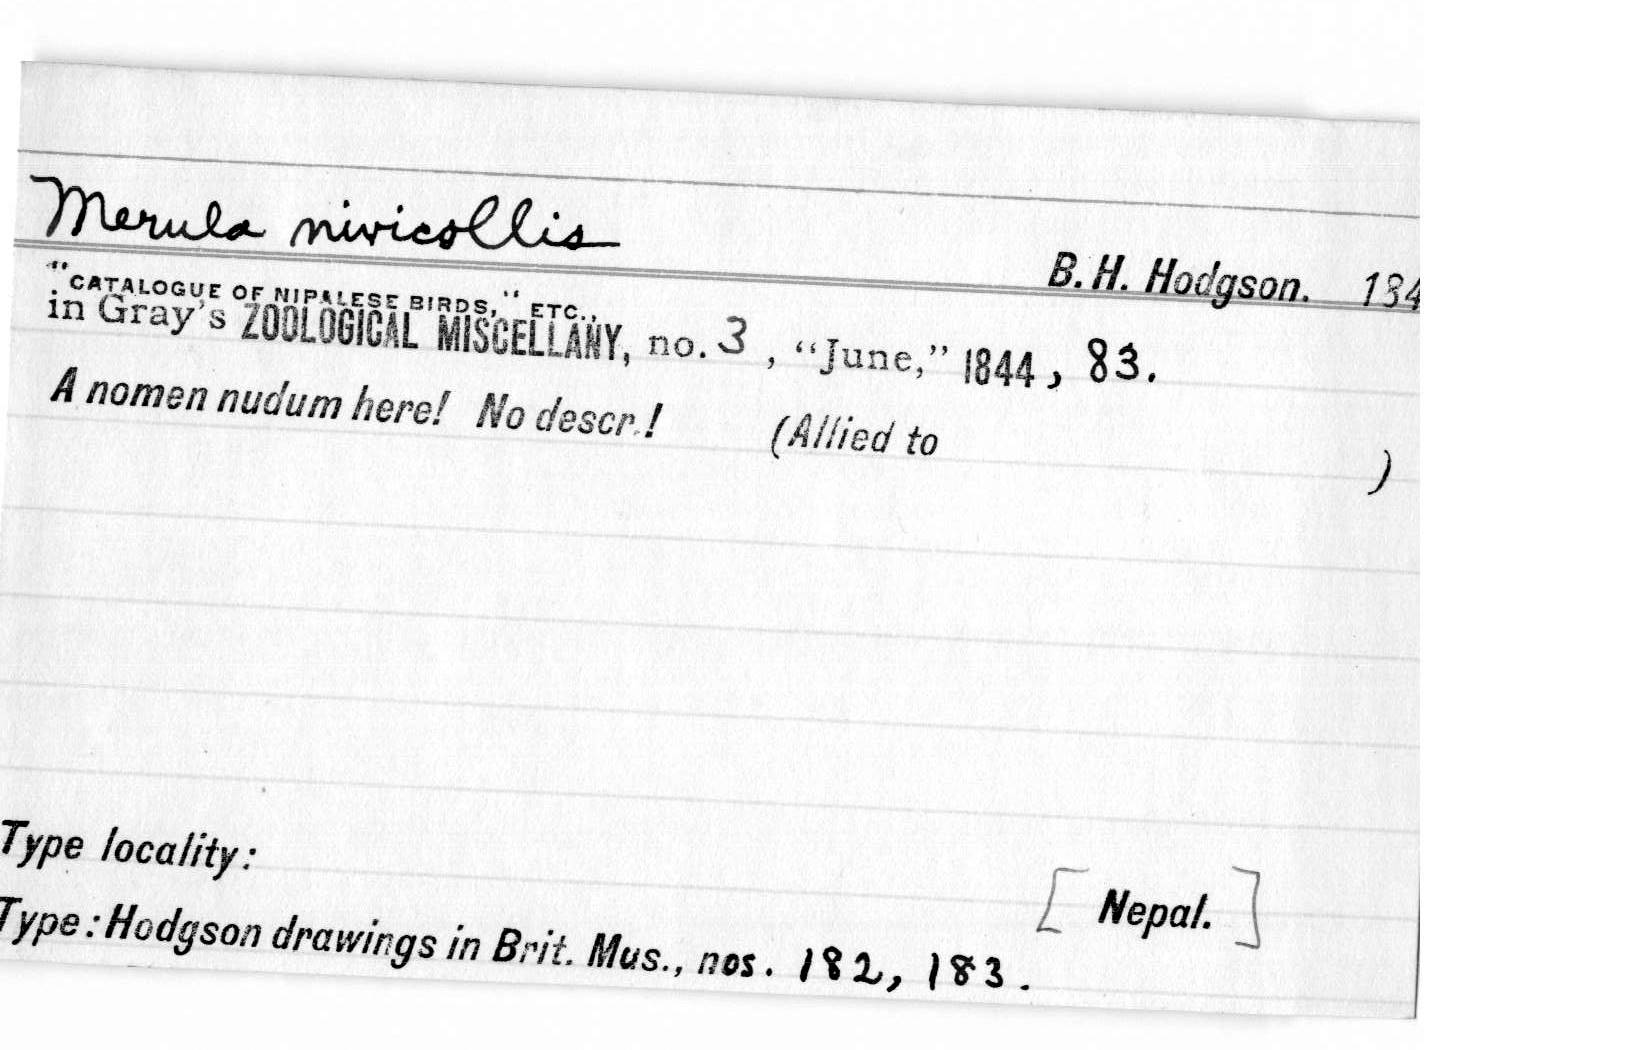 Merula nivicollis
B. H. Hodgson. 184
"CATALOGUE OF NIPALESE BIRDS," ETC.,
in Gray's ZOOLOGICAL MISCELLANY, no. 3, "June," 1844, 83.
A nomen nudum here! No descr.! (Allied to )
Type locality: [Nepal.]
Type: Hodgson drawings in Brit. Mus., nos. 182, 183.